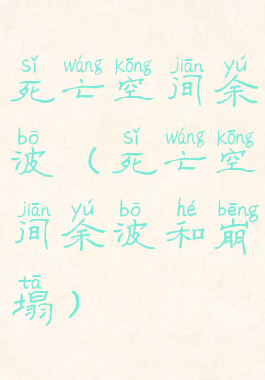 sǐ wáng kōng jiān yú
死亡空间余
bō sǐ wáng kōng
波（死亡空
jiān yú bō hé bēng
间余波和崩
tā
塌）